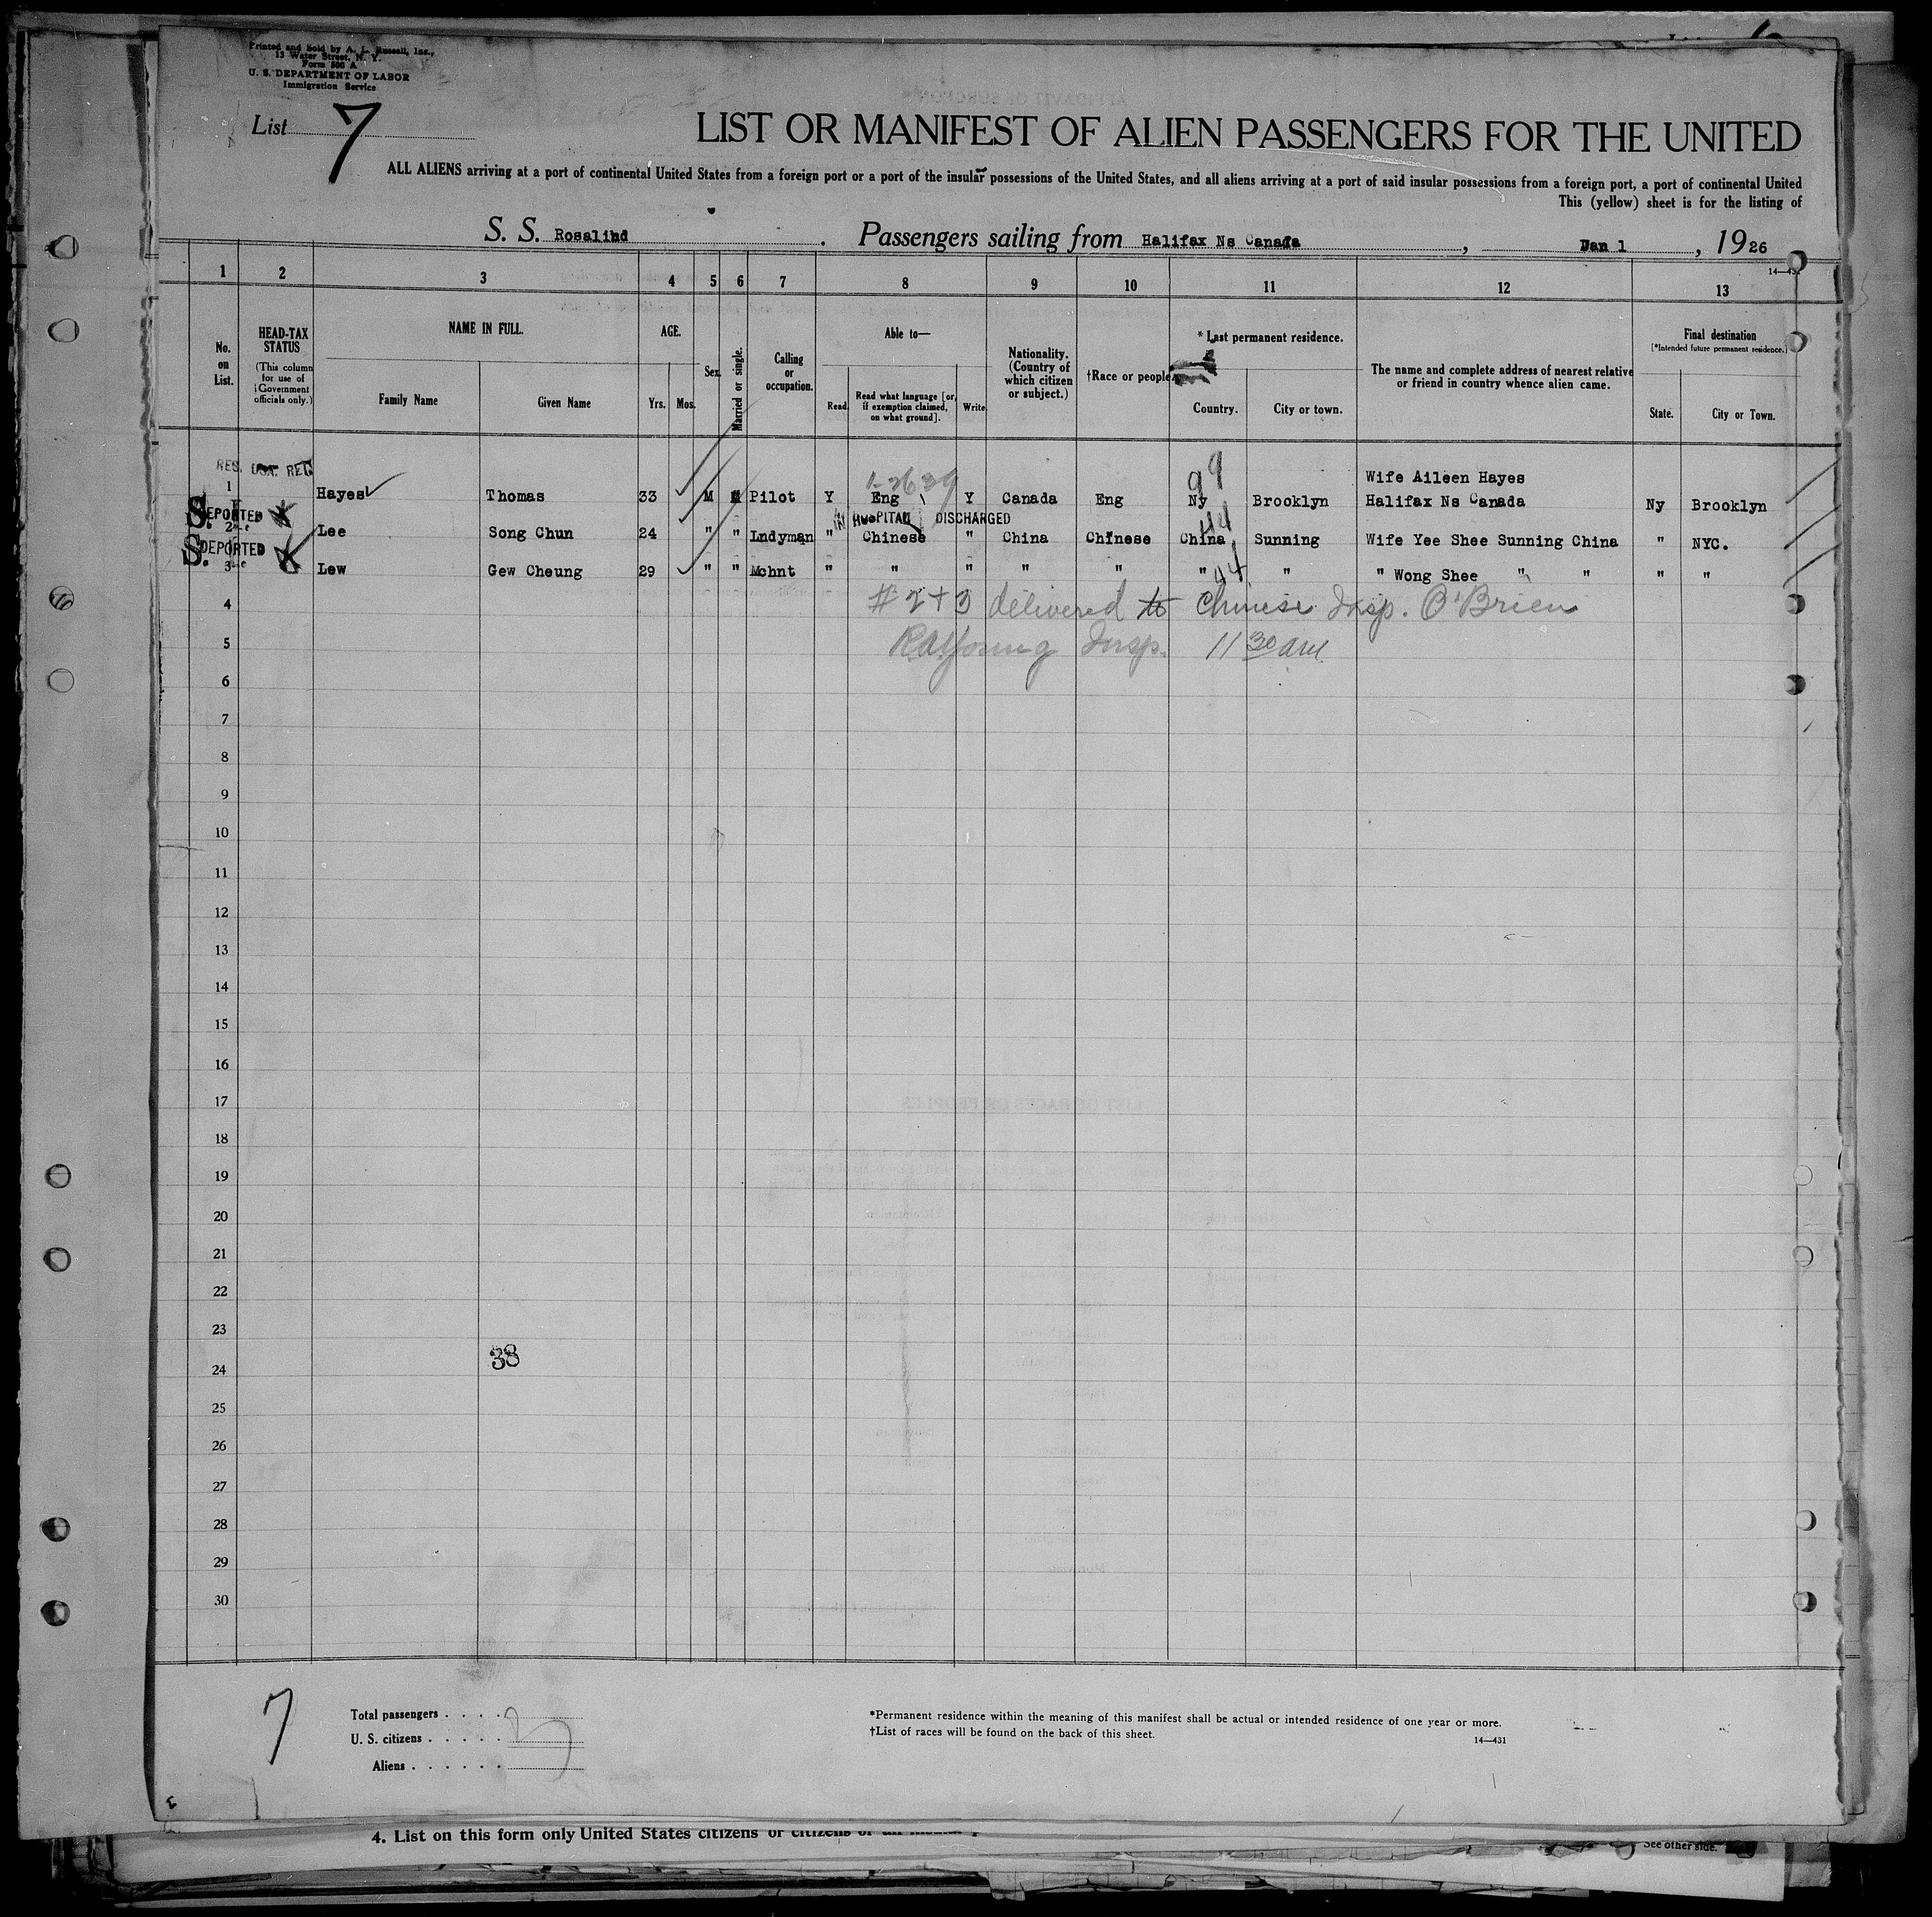 Printed and Sold by A. L. Russell, Inc.,
13 Water Street, N. Y.
Form 500 A
U. S. DEPARTMENT OF LABOR
Immigration Service
List 7
LIST OR MANIFEST OF ALIEN PASSENGERS FOR THE UNITED
ALL ALIENS arriving at a port of continental United States from a foreign port or a port of the insular possessions of the United States, and all aliens arriving at a port of said insular possessions from a foreign port, a port of continental United
This (yellow) sheet is for the listing of
S. S. Rosalind . Passengers sailing from Halifax Ns Canada , Jan 1 , 1926
1 2 3 4 5 6 7 8 9 10 11 12 13
No. on List.
HEAD-TAX STATUS
(This column for use of Government officials only.)
NAME IN FULL.
Family Name Given Name
AGE.
Yrs. Mos.
Sex.
Married or single.
Calling or occupation.
Able to—
Read. Read what language [or, if exemption claimed, on what ground]. Write.
Nationality. (Country of which citizen or subject.)
†Race or people.
* Last permanent residence.
Country. City or town.
The name and complete address of nearest relative or friend in country whence alien came.
Final destination
[*Intended future permanent residence.]
State. City or Town.
RES. USA. REG
1-2639
99
Wife Aileen Hayes
1 Hayes Thomas 33 M M Pilot Y Eng Y Canada Eng Ny Brooklyn Halifax Ns Canada Ny Brooklyn
S. DEPORTED IN HOSPITAL DISCHARGED 44
2 Lee Song Chun 24 " " Lndyman " Chinese " China Chinese China Sunning Wife Yee Shee Sunning China " NYC.
S. DEPORTED 44
3 Lew Gew Cheung 29 " " Mchnt " " " " " " " " Wong Shee " " " "
4 #2+3 delivered to Chinese Insp. O'Brien
5 Young Insp. 11 30 am
6
7
8
9
10
11
12
13
14
15
16
17
18
19
20
21
22
23
38
24
25
26
27
28
29
30
7
Total passengers . . . .
U. S. citizens . . . . .
Aliens . . . . . .
*Permanent residence within the meaning of this manifest shall be actual or intended residence of one year or more.
†List of races will be found on the back of this sheet.
14—431
4. List on this form only United States citizens or citizens of
See other side.